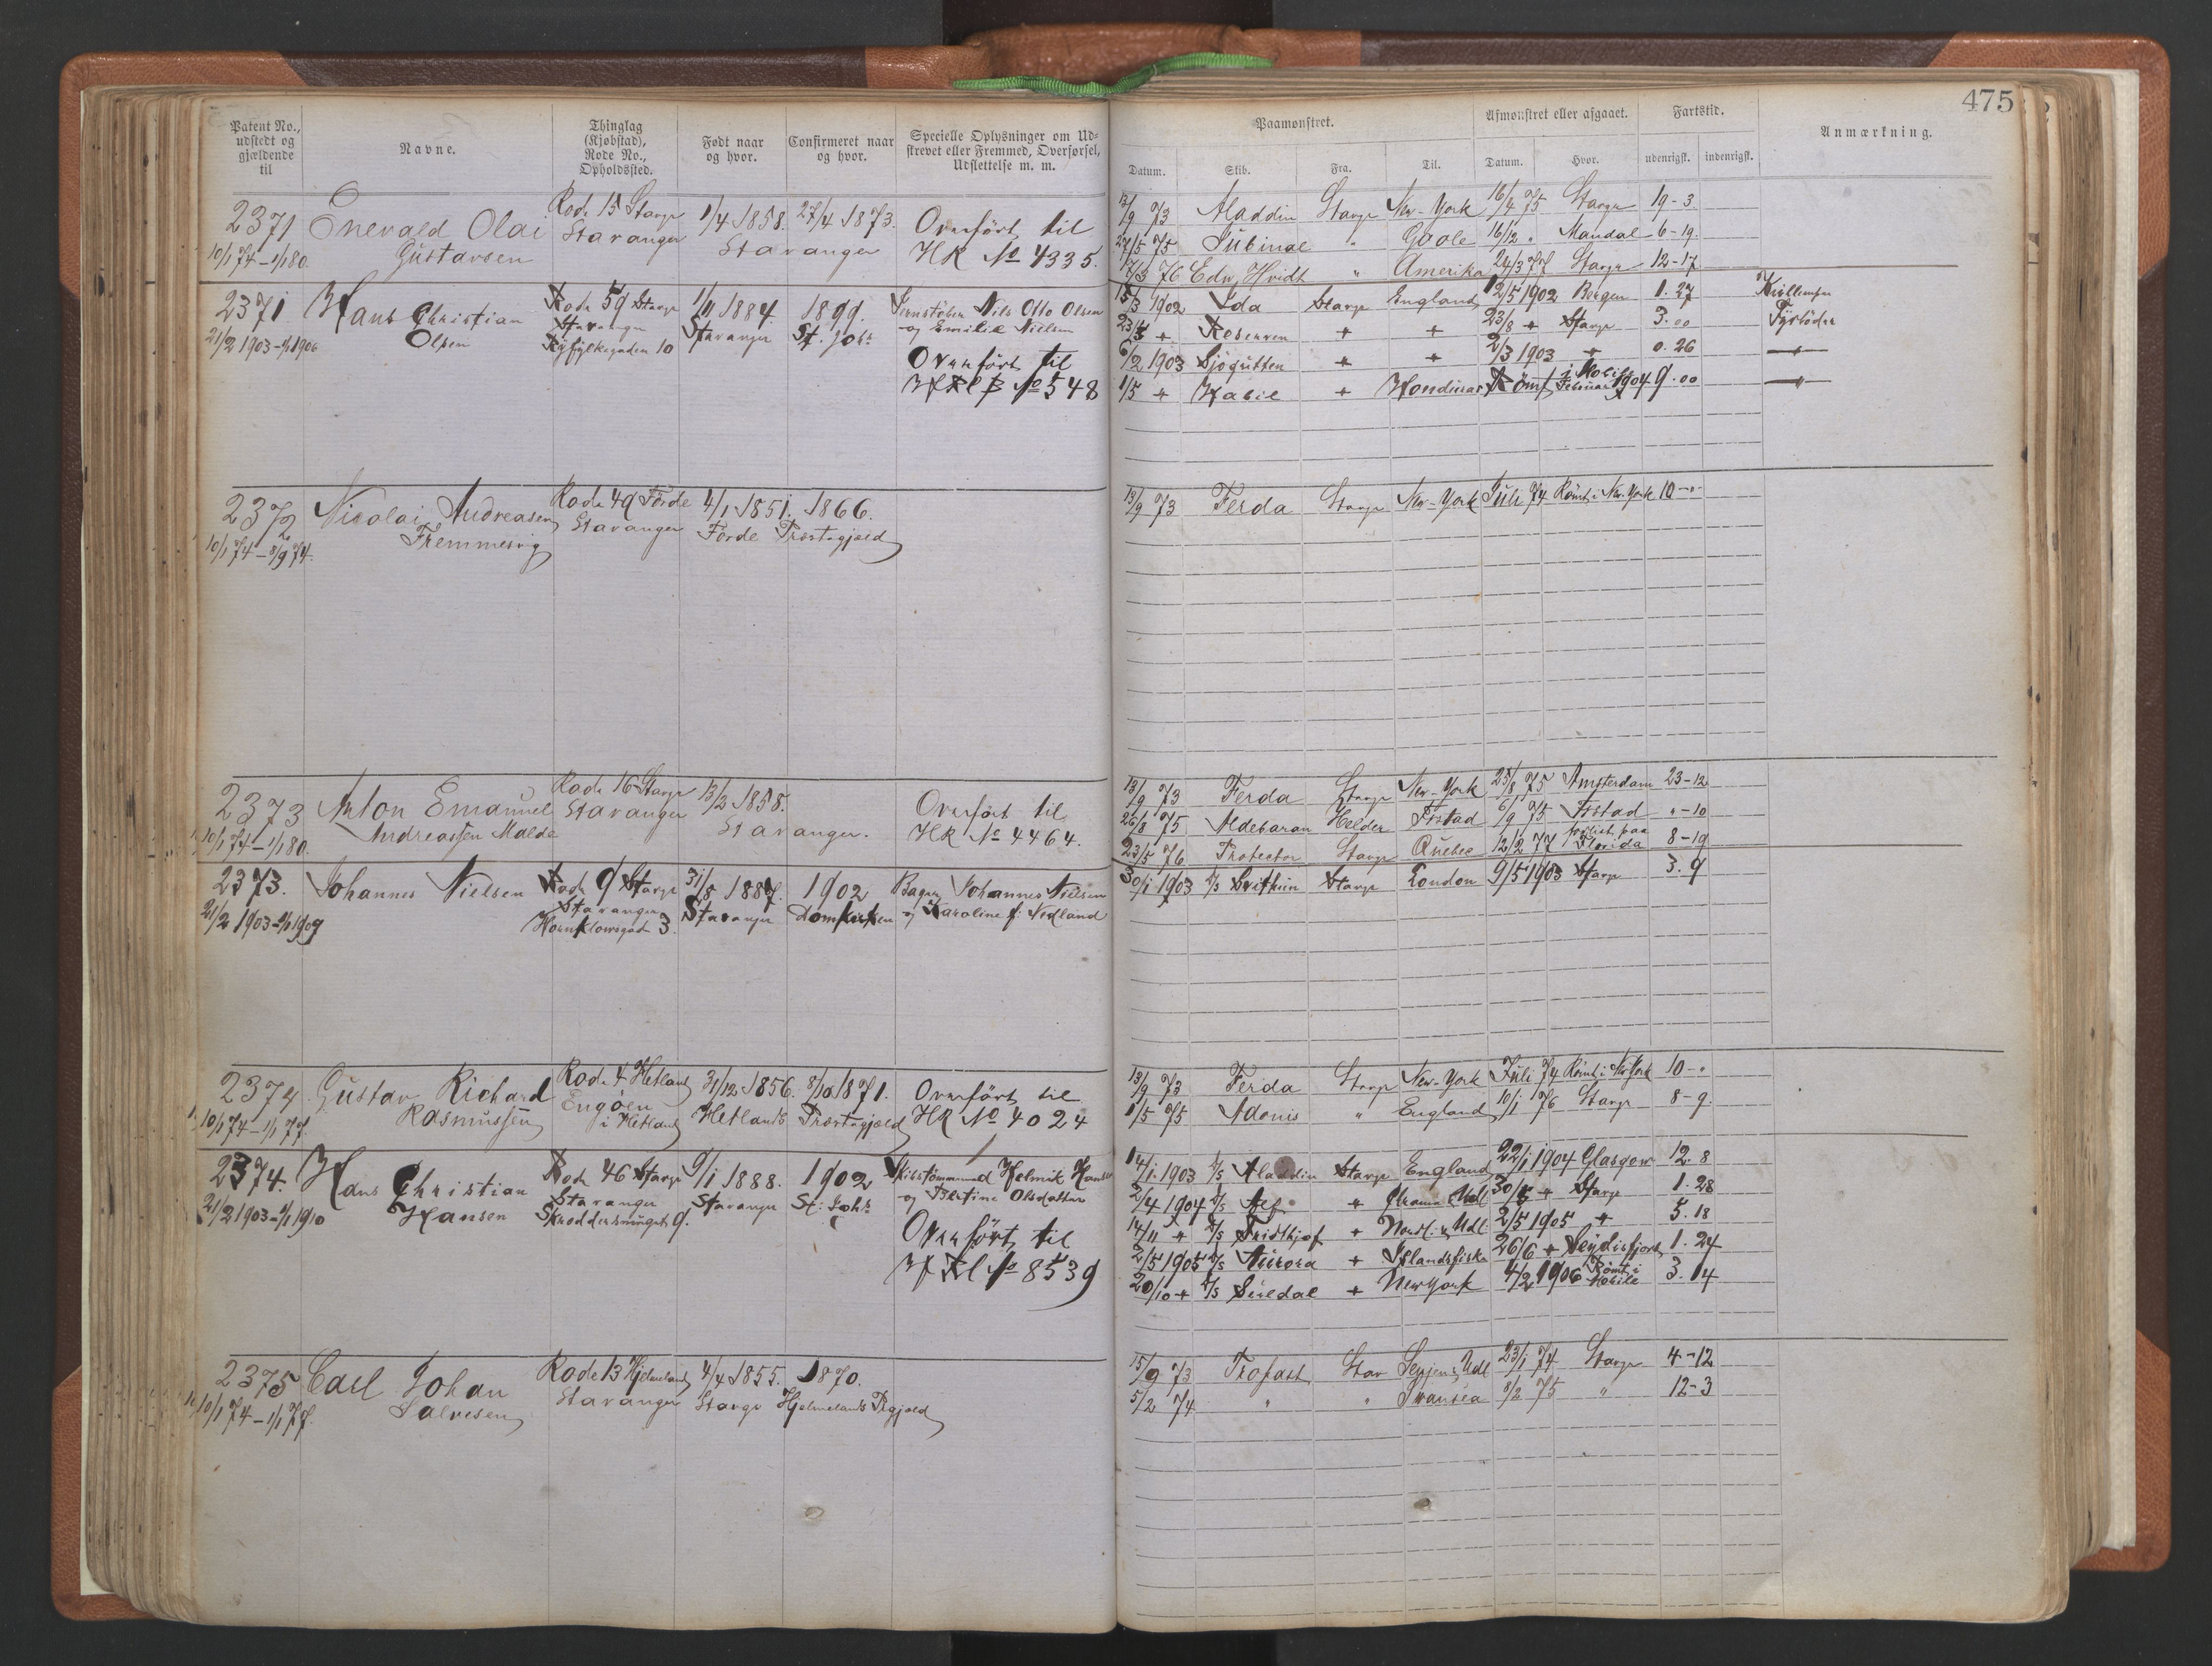 475
Patent No., udstedt og gjældende til
Navne.
Thinglag (Kjøbstad), Rode No., Opholdssted.
Født naar og hvor.
Confirmeret naar og hvor.
Specielle Oplysninger om Udskrevet eller Fremmed, Overførsel, Udslettelse m. m.
Paamønstret.
Afmønstret eller afgaaet.
Fartstid.
Anmærkning.
Datum. Skib. Fra. Til. Datum. Hvor. udenrigsk. indenrigsk.
2371 Enevald Olai Rode 15 Stavgr 1/4 1858. 27/4 1873. Overført til
10/1 74 - 1/1 80. Gustavsen Stavanger Stavanger HR No 4335.
13/9 73 Aladdin Stavgr New-York 16/4 75 Stavgr 19-3.
27/5 75 Jubinal " Goole 16/12 " Mandal 6-19.
17/3 76 Edw. Hvidt " Amerika 24/3 77 Stavgr 12-17
2371 Hans Christian Rode 59 Stavgr 1/11 1884 1899. Nils Otto Olsen
21/2 1903 - 1/1 1906 Olsen Stavanger Stavanger St. Johs og Emilie Nielsen
Ryfylkegaden 10 Overført til
No 548
15/3 1902 Ida Stavgr England 12/5 1902 Bergen 1.27
+ + + 23/8 + Stavgr 3.00 Fyrbøder
6/2 1903 Sjøgutten + + 2/3 1903 + 0.26
1/5 + + Honduras Rømt i Mobile Februar 1904 9.00
2372 Nicolai Andreasen Rode 49 Førde 4/1 1851. 1866.
10/1 74 - 8/9 74. Stavanger Førde Præstegjæld
13/9 73 Ferda Stavgr New-York Juli 74 Rømt i New-York 10-"-
2373 Anton Emanuel Rode 16 Stavgr 13/2 1858. Overført til
10/1 74 - 1/1 80. Andreassen Malde Stavanger Stavanger. HR No 4464.
13/9 73 Ferda Stavgr New-York 25/8 75 Amsterdam 23-12
26/8 75 Aldebaran Helder Frstad 6/9 75 Frstad "-10
23/5 76 Protector Stavgr Quebec 12/2 77 forlist paa Florida 8-19
2373. Johannes Nielsen Rode 9 Stavgr 31/8 1887. 1902 Bager Johannes Nielsen
21/2 1903 - 1/1 1909 Stavanger Stavanger Domkirken og Karoline f. Nedland
Hornklowsgade 3.
30/1 1903 D/S Svithun Stavgr London 9/5 1903 Stavgr 3.9
2374 Gustav Richard Rode 4 Hetland 31/12 1856. 8/10 1871. Overført til
10/1 74 - 1/1 77. Rasmussen Engøen i Hetland Hetlands Præstegjæld HR No 4024
13/9 73 Ferda Stavgr New-York Juli 74 Rømt i N.York 10-"
1/5 75 Adonis " England 10/1 76 Stavgr 8-9.
2374. Hans Christian Rode 46 Stavgr 9/1 1888. 1902 Skibstømmermand Helmik Hansen
21/2 1903 - 1/1 1910 Hansen Stavanger Stavanger St: Johs og Bertine Olsdatter
Skreddersmuget 9. Overført til
No 8539
14/1. 1903 D/S Aladdin Stavgr England 22/1 1904 Glasgow 12.8
2/4 1904 D/S Alf + 30/5 + Stavgr 1.28
14/11 + D/S Fridthjof + Nordl. & Udl. 2/5 1905 + 5.18
2/5 1905 D/S Aurora + Islandsfiske 26/6 + Seydisfjord 1.24
20/10 + D/S Siredal + NewYork 4/2 1906 Rømt i Mobile 3.14
2375 Carl Johan Rode 13 Hjelmeland 4/4 1855. 1870.
10/1 74 - 1/1 77. Salvesen Stavanger Stavgr Hjelmelands Prgjæld
15/9 73 Trofast Stav 23/1 74 Stavgr 4-12
5/2 74 " " Swansea 8/2 75 " 12-3